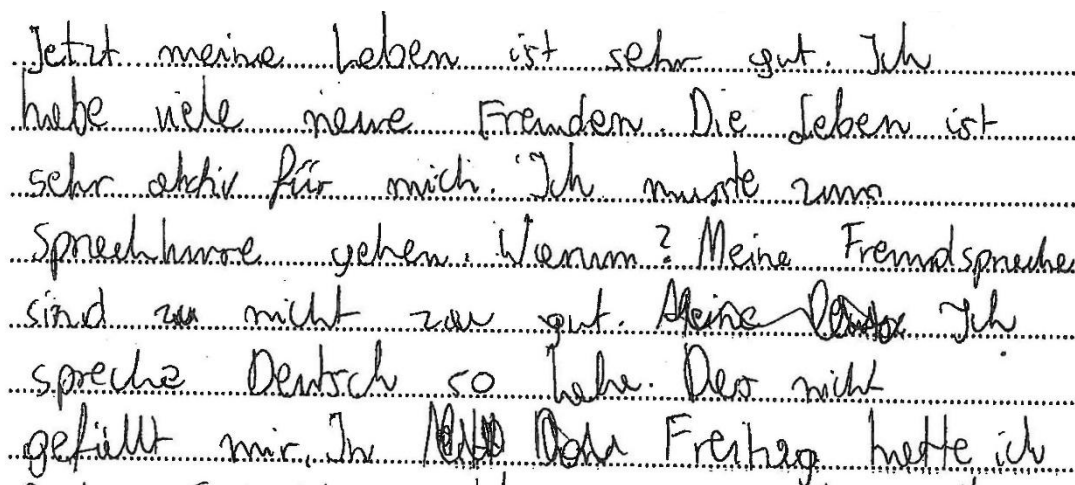 Jetzt meine Leben ist sehr gut. Ich
habe viele neue Freunden. Die Leben ist
sehr aktiv für mich. Ich musste zum
Sprachkurse gehen. Warum? Meine Fremdsprache
sind nicht zu gut. Ich
spreche Deutsch so Das nicht
gefällt mir. In Freitag hatte ich